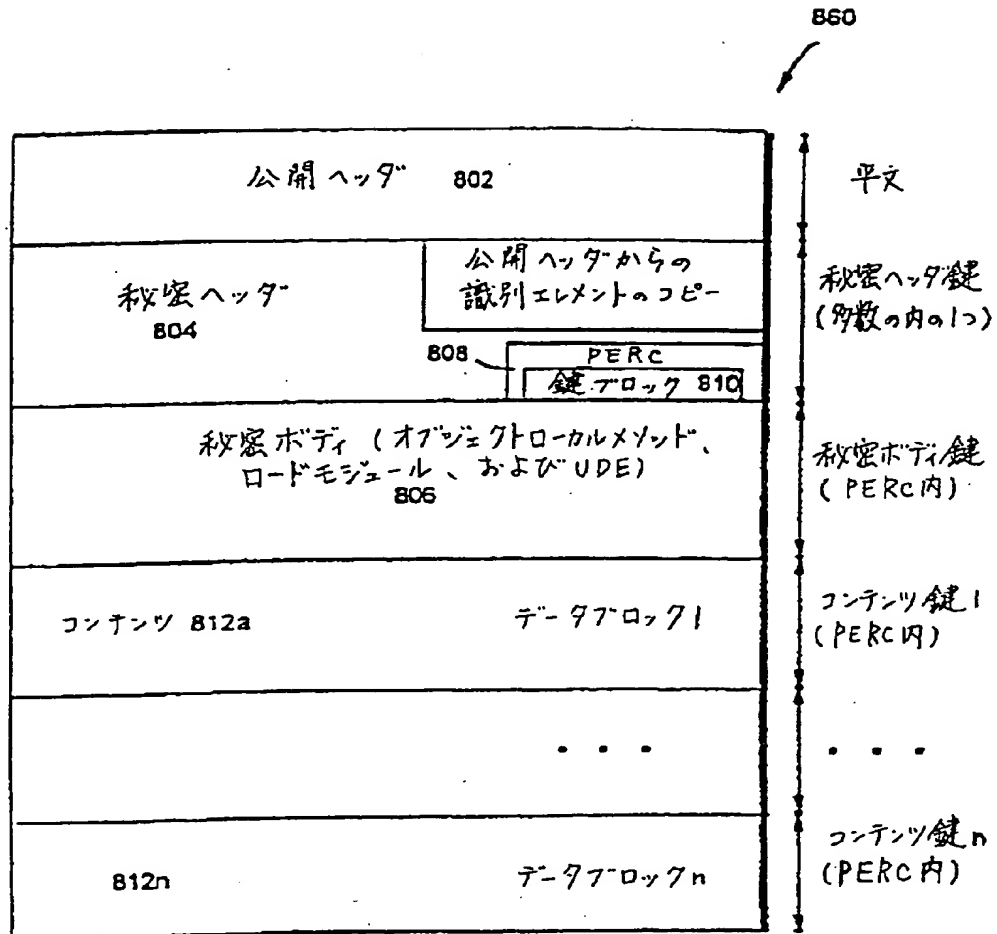 860
公開ヘッダ 802
平文
秘密ヘッダ
804
公開ヘッダからの
識別エレメントのコピー
808
PERC
鍵ブロック 810
秘密ヘッダ鍵
(多数の内の1つ)
秘密ボディ (オブジェクトローカルメソッド、
ロードモジュール、およびUDE)
806
秘密ボディ鍵
(PERC内)
コンテンツ 812a
データブロック1
コンテンツ鍵1
(PERC内)
・・・
・・・
812n
データブロックn
コンテンツ鍵n
(PERC内)